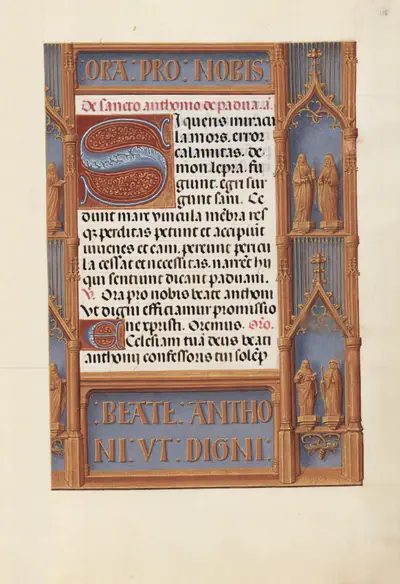 ORA: PRO: NOBIS
De sancto anthonio de padua. a.
Si queris miracu
la mors. error
calamitas. De
mon lepra. fu
giunt. egri sur
gunt sani. Ce
dunt mare vincula mēbra res
qz perditas petunt et accipiūt
iuuenes et cani. pereunt pericu
la cessat et necessitas. narrēt hi
qui sentiunt dicant paduani.
V. Ora pro nobis beate anthoni
Vt digni efficiamur promissio
ne xpristi. Oremus. Oro.
Ecclesiam tuā deus beati
anthonij confessoris tui solēp
:BEATE: ANTHO
NI: VT: DIGNI: